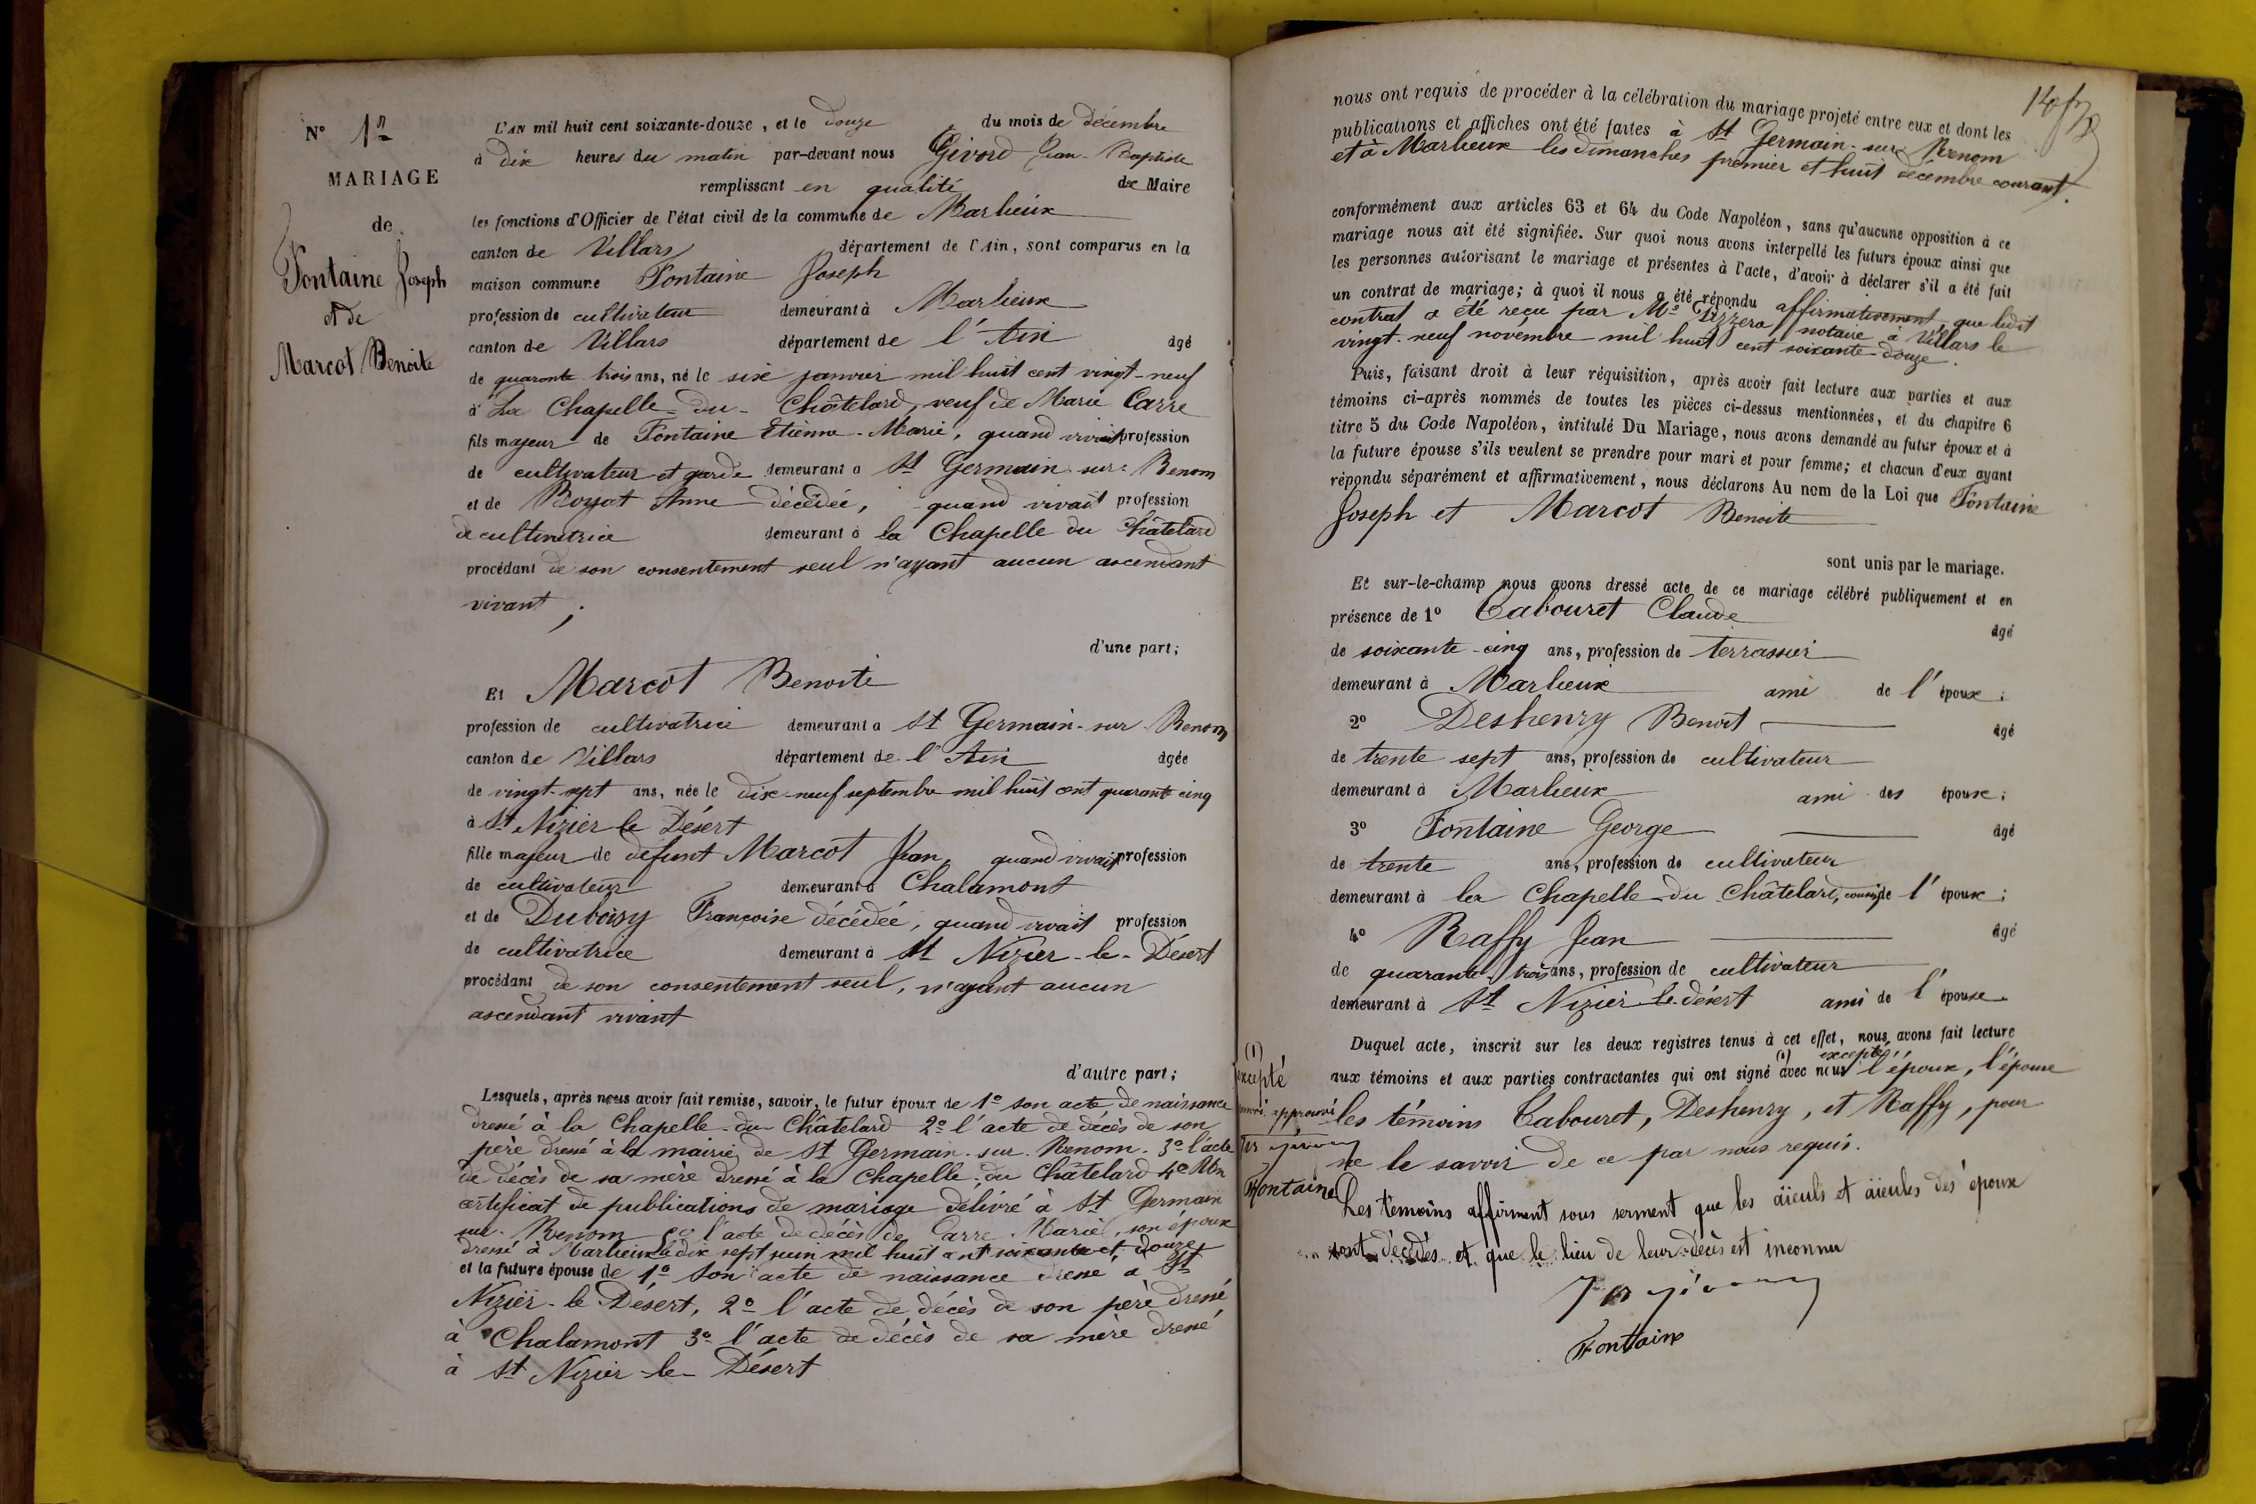 N° 1
MARIAGE
de
Fontaine Joseph
et de
Marcot Benoite
L'AN mil huit cent soixante-douze, et le douze du mois de décembre
à dix heures du matin par-devant nous Givord Jean-Baptiste
remplissant en qualité de Maire
les fonctions d'Officier de l'état civil de la commune de Marlieux
canton de Villars département de l'Ain, sont comparus en la
maison commune Fontaine Joseph
profession de cultivateur demeurant à Marlieux
canton de Villars département de l'Ain âgé
de quarante trois ans, né le six janvier mil huit cent vingt-neuf
à La Chapelle-du-Châtelard, veuf de Marie Carre
fils majeur de Fontaine Etienne-Marie, quand vivait profession
de cultivateur et garde demeurant à St Germain-sur-Renom
et de Anne décédée, quand vivait profession
de cultivatrice demeurant à la Chapelle du Châtelard
procédant de son consentement seul n'ayant aucun ascendant
vivant ;
d'une part;
Et Marcot Benoite
profession de cultivatrice demeurant à St Germain-sur-Renom
canton de Villars département de l'Ain âgée
de vingt-sept ans, née le dix-neuf septembre mil huit cent quarante cinq
à St Nizier le Désert
fille majeur de défunt Marcot Jean, quand vivait profession
de cultivateur demeurant à Chalamont
et de Françoise décédée, quand vivait profession
de cultivatrice demeurant à St Nizier-le-Désert
procédant de son consentement seul, n'ayant aucun
ascendant vivant
d'autre part;
Lesquels, après nous avoir fait remise, savoir, le futur époux de 1° son acte de naissance
dressé à la Chapelle-du-Châtelard 2° l'acte de décès de son
père dressé à la mairie de St Germain-sur-Renom. 3° l'acte
de décès de sa mère dressé à la Chapelle-du Châtelard 4° Un
certificat de publications de mariage délivré à St Germain
sur-Renom 5° l'acte de décès de Carre Marie, son épouse
dressé à Marlieux le dix sept juin mil huit cent soixante et douze
et la future épouse de 1° Son acte de naissance dressé à St
Nizier-le-Désert, 2° l'acte de décès de son père dressé
à Chalamont 3° l'acte de décès de sa mère dressé
à St Nizier-le-Désert
nous ont requis de procéder à la célébration du mariage projeté entre eux et dont les
publications et affiches ont été faites à St Germain-sur-Renom
et à Marlieux les dimanches premier et huit décembre courant.
conformément aux articles 63 et 64 du Code Napoléon, sans qu'aucune opposition à ce
mariage nous ait été signifiée. Sur quoi nous avons interpellé les futurs époux ainsi que
les personnes autorisant le mariage et présentes à l'acte, d'avoir à déclarer s'il a été fait
un contrat de mariage; à quoi il nous a été répondu affirmativement, que ledit
contrat a été reçu par Me notaire à Villars le
vingt-neuf novembre mil huit cent soixante-douze.
Puis, faisant droit à leur réquisition, après avoir fait lecture aux parties et aux
témoins ci-après nommés de toutes les pièces ci-dessus mentionnées, et du chapitre 6
titre 5 du Code Napoléon, intitulé Du Mariage, nous avons demandé au futur époux et à
la future épouse s'ils veulent se prendre pour mari et pour femme; et chacun d'eux ayant
répondu séparément et affirmativement, nous déclarons Au nom de la Loi que Fontaine
Joseph et Marcot Benoite
sont unis par le mariage.
Et sur-le-champ nous avons dressé acte de ce mariage célébré publiquement et en
présence de 1° Cabouret Claude âgé
de soixante-cinq ans, profession de terrassier
demeurant à Marlieux ami de l'époux;
2° Deshenry Benoit âgé
de trente sept ans, profession de cultivateur
demeurant à Marlieux ami des époux;
3° Fontaine George âgé
de trente ans, profession de cultivateur
demeurant à la Chapelle-du Châtelard, cousin de l'époux;
4° Raffy Jean âgé
de quarante-trois ans, profession de cultivateur
demeurant à St Nizier le désert ami de l'épouse
Duquel acte, inscrit sur les deux registres tenus à cet effet, nous avons fait lecture
aux témoins et aux parties contractantes qui ont signé (1) avec nous excepté l'époux, l'épouse
les témoins Cabouret, Deshenry, et Raffy, pour
ne le savoir de ce par nous requis.
Les témoins affirment sous serment que les aïeuls et aïeules des époux
sont décédés et que le lieu de leur décès est inconnu
Fontaine
(1)
excepté
approuvé
Fontaine